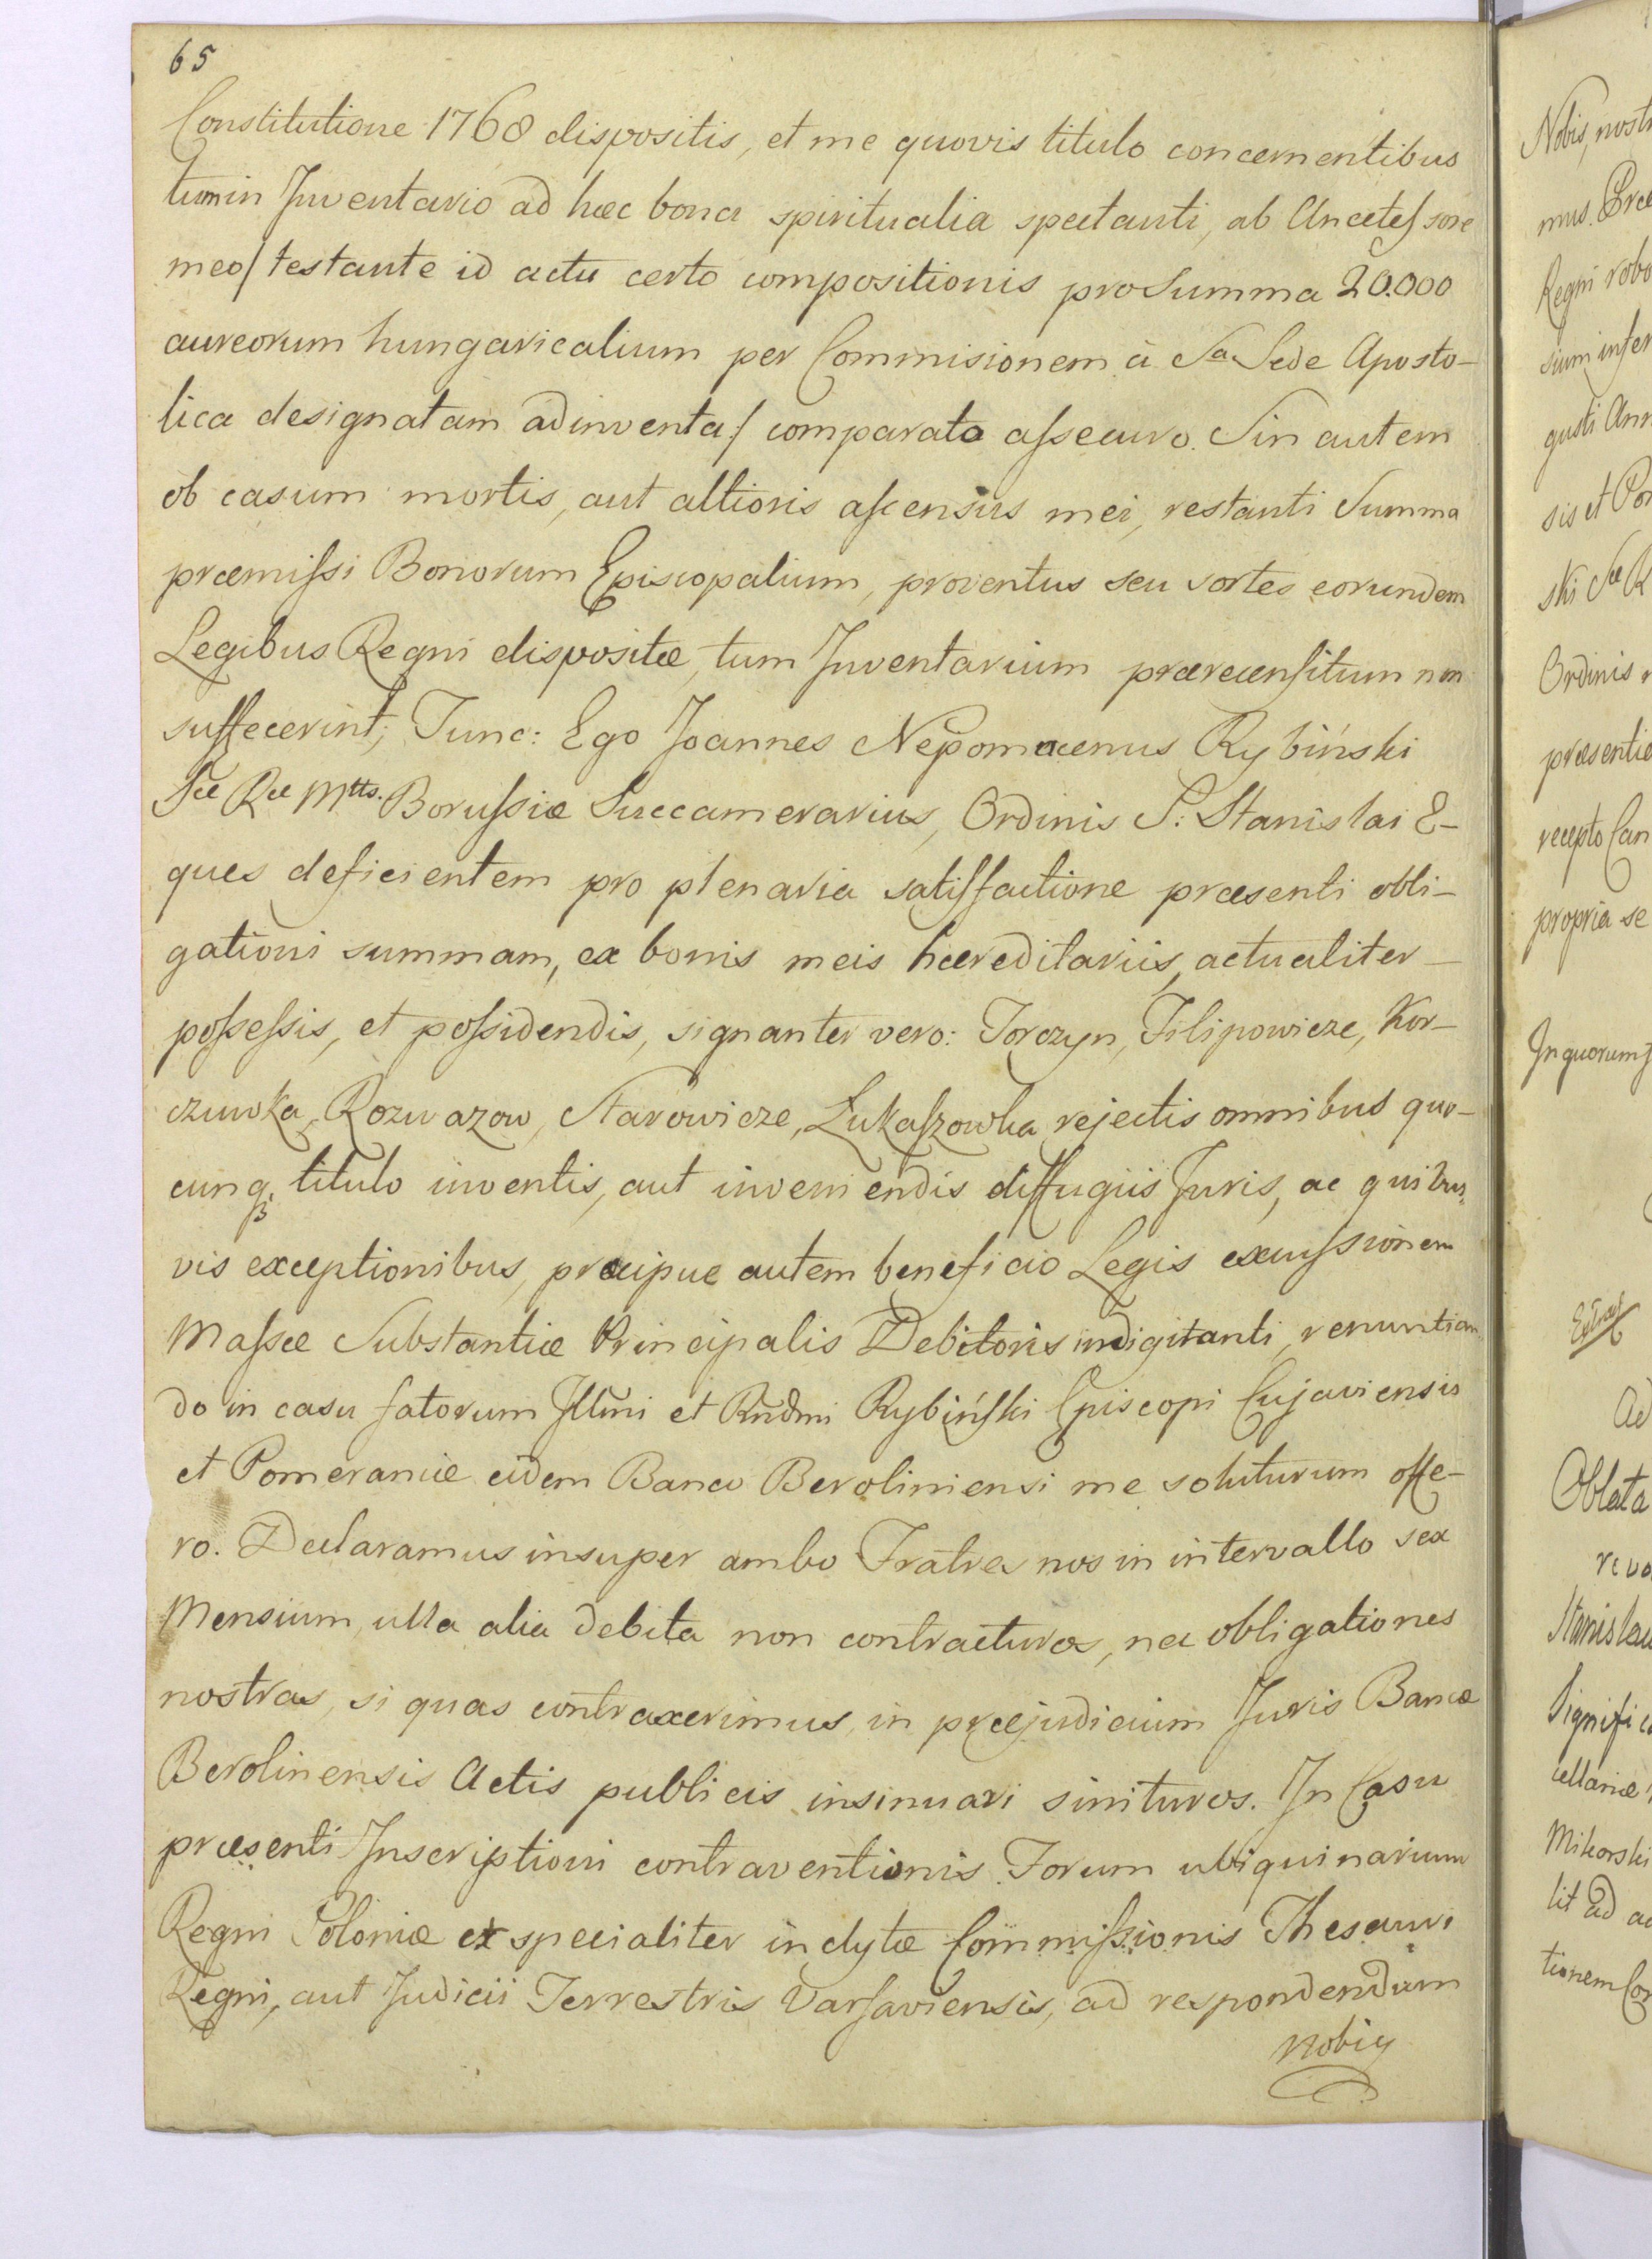 65
Constitutione 1768 dispositis, et me quovis titulo concernentibus
tum in Inventario ad hæc bona spiritualia spectanti, ab Ancetessore
meo/ testante id actu certo compositionis pro Summa 20.000
aureorum hungaricalium per Commisionem à Sa Sede Aposto-
lica designatam adinventa/ comparato assecuro. Sin autem
ob casum mortis, aut altioris ascensus mei, restanti Summa
præmissi Bonorum Episcopalium, proventus seu sortes eorundem
Legibus Regni dispositæ, tum Inventarium præreensitum non
suffecerint; Tunc: Ego Joannes Nepomucenus Rybiński
Sæ Ræ Mtts. Borussiæ Succamerarius, Ordinis S: Stanislai E-
ques deficientem pro plenaria satisfactione præsenti obli-
gationi summam, ex bonis meis hæreditariis, actualiter
possessis, et possidendis, signanter vero: Torczyn, Filipowicze, Kor-
czuwka, Rozwazow, Starowicze, Lukaszowka rejectis omnibus quo-
cunq titulo inventis, aut inveniendis diffugiis Juris, ac quibus
vis exceptionibus, præcipue autem beneficio Legis excussionem
Massæ Substantiæ Principalis Debitoris indigitanti, renuntian
do in casu fatorum Illmi et Rndmi Rybiński Episcopi Cujaviensis
et Pomeraniæ eidem Banco Beroliniensi me soluturum offe-
ro. Declaramus insuper ambo Fratres nos in intervallo sex
Mensium, ulla alia debita non contracturos, nec obligationes
nostras, si quas contraxerimus, in præjudicium Juris Bancæ
Berolinensis Actis publicis insinuari sinituros. In Casu
præsenti Inscriptioni contraventionis Forum ubiquinarium
Regni Poloniæ et specialiter inclytæ Commissionis Thesauri
Regni, aut Judicii Terrestris Varsaviensis, ad respondendum
nobis
Nobis, nostr
mus. Præ
Regni robo
sium infer
gusti Ann
sis et Pom
ski Sæ R
Ordinis
præsentie
recepto Can
propria se
In quorum
Extrad
Ad
Oblata
revo
Stanislau
Significa
cellariæ
Mikorski
lit ad ac
tionem Cor